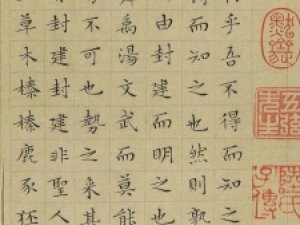 乎吾不得而知之
得而知之也然則孰
由封建而明之也
禹湯文武而莫能
不可也勢之來其
封建封建非聖人
草木榛榛鹿豕狉
先生
陸氏子傳